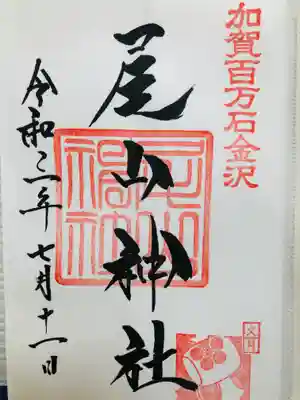 加賀百万石金沢
尾山神社
令和二年七月十一日
文月